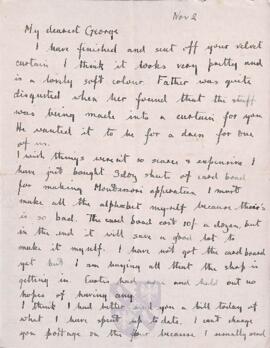 Nov 2
My dearest George
I have finished and sent off your velvet
curtain I think it looks very pretty and
is a lovely soft colour. Father was quite
disgusted when he found that the stuff
was being made into a curtain for you
He wanted it to be for a dress for one
of us.
I wish things weren't so scarce & expensive I
have just bought 3 doz sheets of card board
for making Montessori apparatus I must
make all the alphabet myself because theirs
is so bad. The card board cost 10/ a dozen, but
in the end it will save a good lot to
make it myself. I have not got the card board
yet but I am buying all that the shop is
getting in. and held out no
hopes of having any.
I think I had better send you a bill today of
what I have spent up to date. I can't charge
you postage on the because I usually send